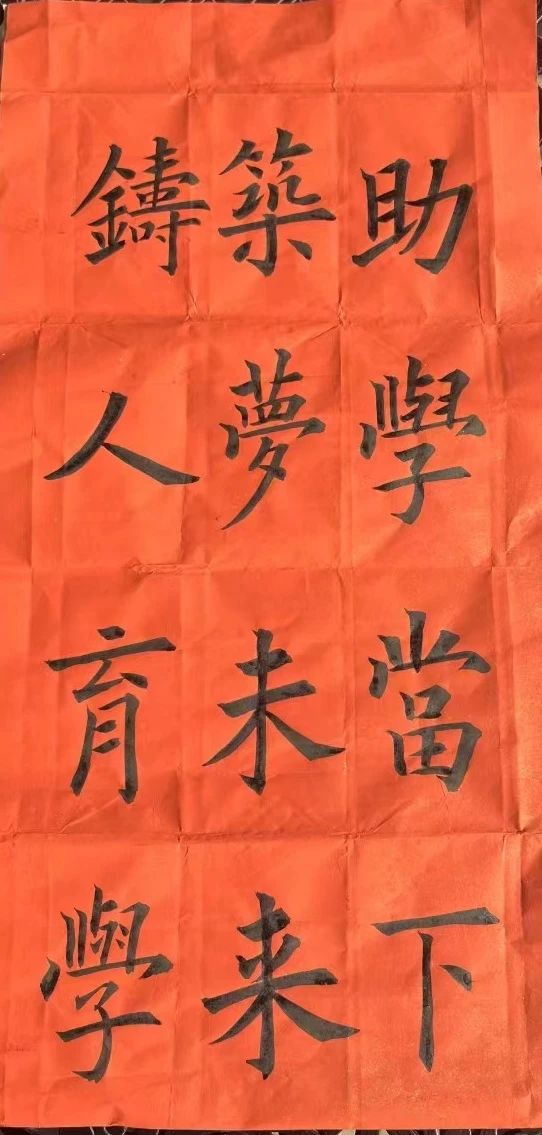 助學當下
築夢未来
鑄人育學